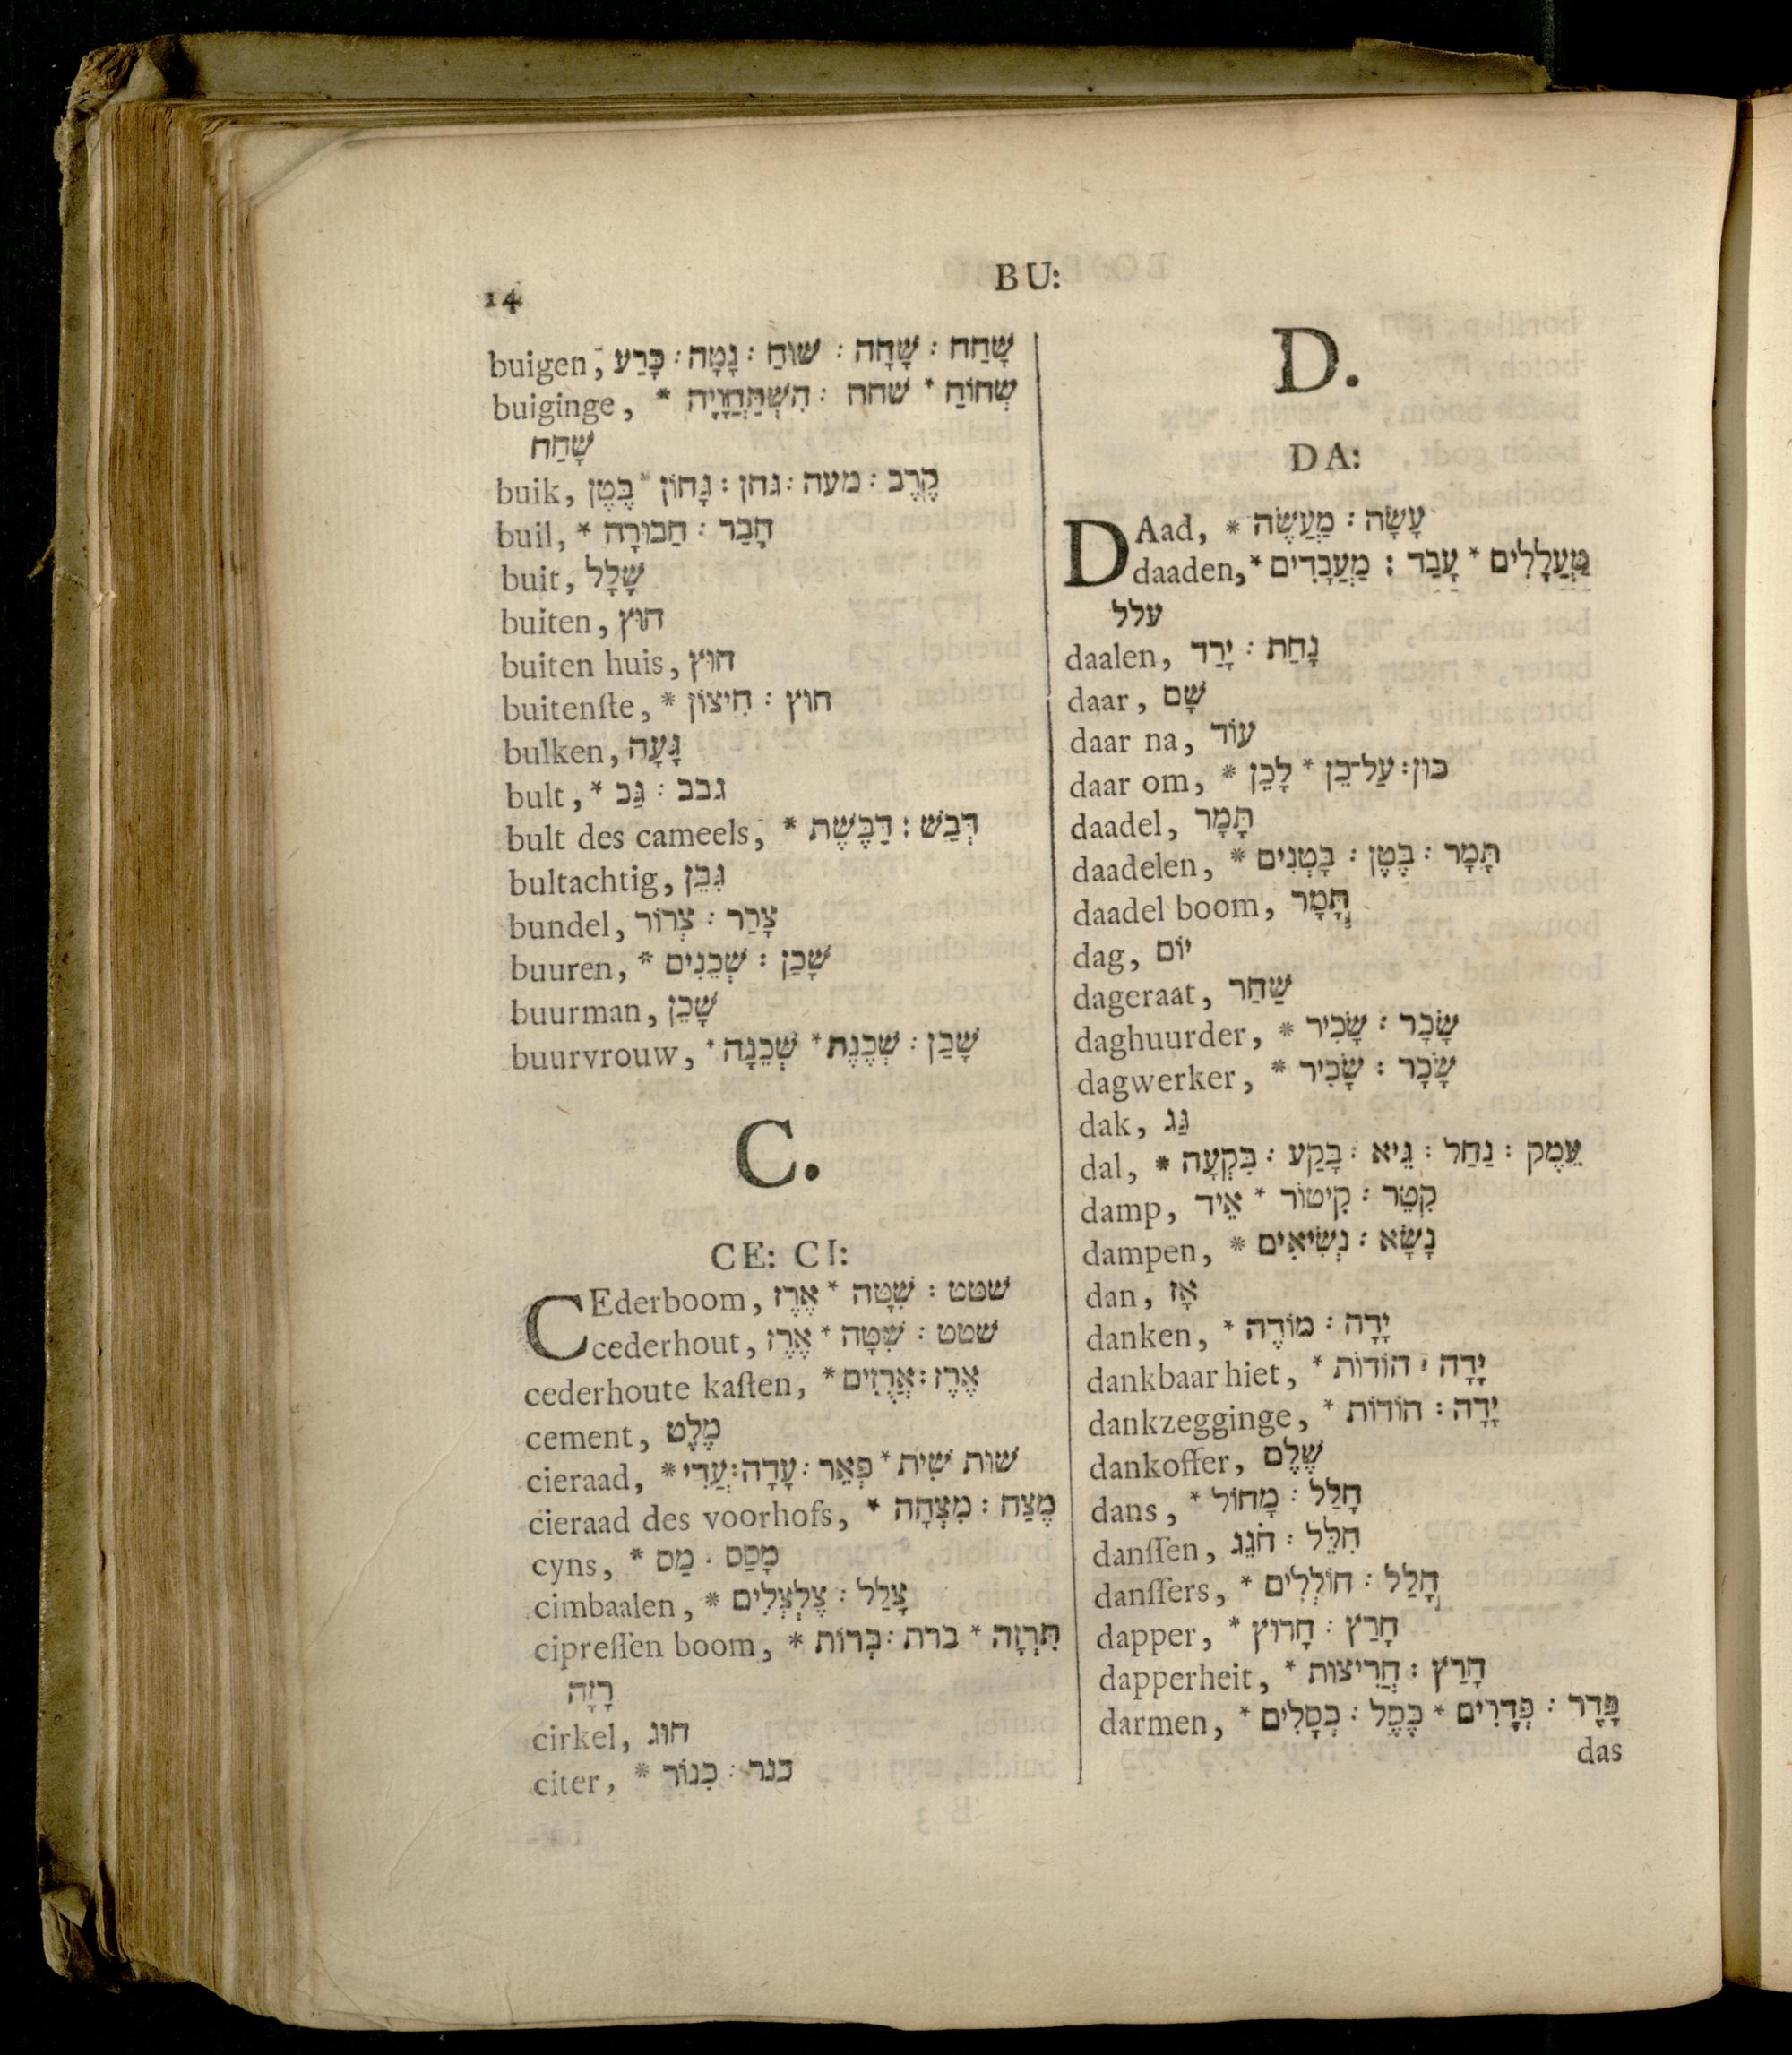 14
BU:
buigen, שָׁחַח : שָׁחָה : שׁוּחַ : נָטָה : כָּרַע
buiginge, * שְׁחוֹחַ * שׁחה : הִשְׁתַּחֲוָיָה
שָׁחַח
buik, קֶרֶב : מעה : גחן : גָּחוֹן * בֶּטֶן
buil, * חָבַר : חַבּוּרָה
buit, שָׁלָל
buiten, חוּץ
buiten huis, חוּץ
buitenſte, * חוּץ : חִיצוֹן
bulken, גָּעָה
bult, * גבב : גַּב
bult des cameels, * דְּבַשׁ : דַּבֶּשֶׁת
bultachtig, גִּבֵּן
bundel, צָרַר : צְרוֹר
buuren, * שָׁכַן : שְׁכֵנִים
buurman, שָׁכֵן
buurvrouw, * שָׁכַן : שְׁכֶנֶת * שְׁכֵנָה
C.
CE: CI:
CEderboom, שׁטט : שִׁטָּה * אֶרֶז
cederhout, שׁטט : שִׁטָּה * אֶרֶז
cederhoute kaſten, * אֶרֶז : אֲרֻזִים
cement, מֶלֶט
cieraad, * שׁוּת שִׁית * פְּאֵר : עָדָה : עֲדִי
cieraad des voorhofs, * מֶצַח : מִצְחָה
cyns, * מָסַס : מַס
cimbaalen, * צָלַל : צֶלְצְלִים
cipreſſen boom, * תִּרְזָה * ברת : בְּרוֹת
רָזָה
cirkel, חוּג
citer, * כנר : כִּנּוֹר
D.
DA:
DAad, * עָשָׂה : מַעֲשֶׂה
daaden, * מַעֲלָלִים * עָבַד : מַעֲבָדִים
עלל
daalen, נָחַת : יָרַד
daar, שָׁם
daar na, עוֹד
daar om, * כּוּן : עַל־כֵּן * לָכֵן
daadel, תָּמָר
daadelen, * תָּמָר : בֶּטֶן : בָּטְנִים
daadel boom, תָּמָר
dag, יוֹם
dageraat, שַׁחַר
daghuurder, * שָׂכָר : שָׂכִיר
dagwerker, * שָׂכָר : שָׂכִיר
dak, גַּג
dal, * עֵמֶק : נַחַל : גֵּיא : בָּקַע : בִּקְעָה
damp, קִטֵּר : קִיטוֹר * אֵיד
dampen, * נָשָׂא : נְשִׂיאִים
dan, אָז
danken, * יָדָה : מוֹדֶה
dankbaar hiet, * יָדָה : הוֹדוֹת
dankzegginge, * יָדָה : הוֹדוֹת
dankoffer, שֶׁלֶם
dans, * חָלַל : מָחוֹל
danſſen, חִלֵּל : חֹגֵג
danſſers, * חָלַל : חוֹלְלִים
dapper, * חָרַץ : חָרוּץ
dapperheit, * חָרַץ : חֲרִיצוּת
darmen, * פָּדָר : פְּדָרִים * כֶּסֶל : כְּסָלִים
das